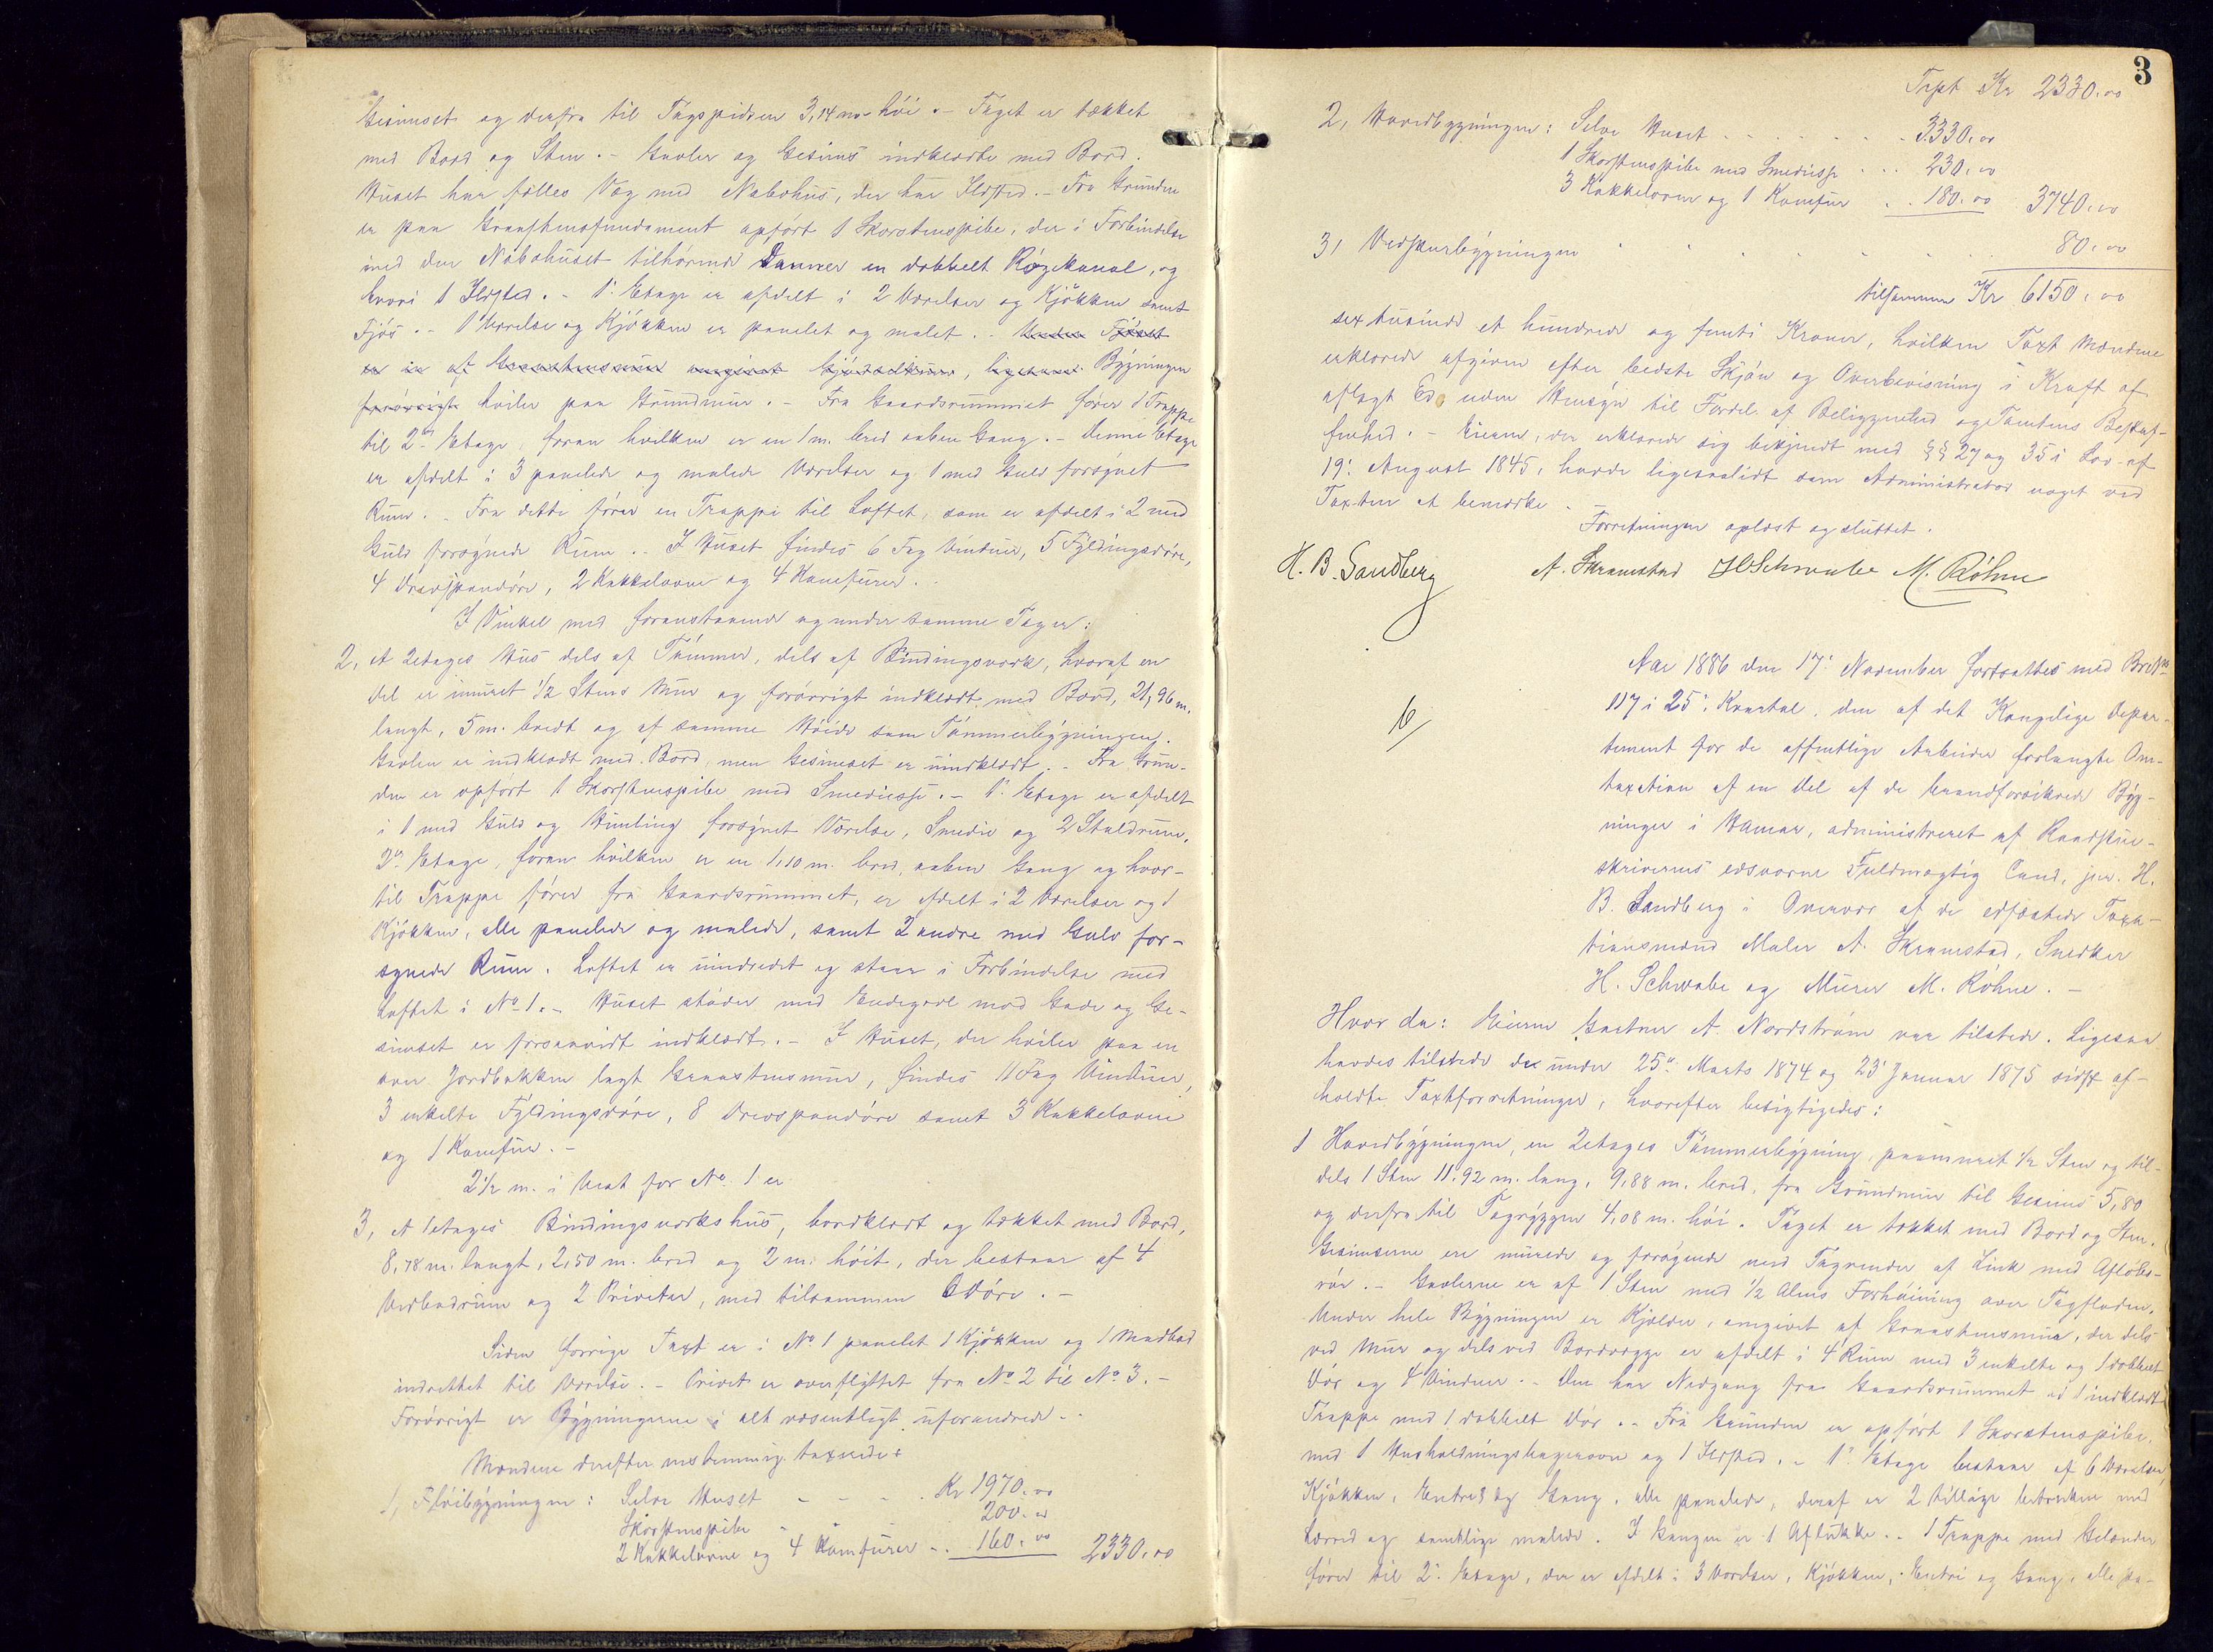 Gesimset og derfra til Tagspidsen 3,14 m høi. - Taget er tækket
med Bord og Sten. - Gavler og Gesims indklædte med Bord.
Huset har fælles Væg med Nabohus, der har Ildsted. - Fra Grunden
er paa Graastensfundament opført 1 Skorstenspibe, der i Forbindelse
med den Nabohuset tilhørende danner en dobbelt Røgekanal, og
hvori 1 Ildsted. - 1ste Etage er afdelt i 2 Værelser og Kjøkken samt
Fjøs. - 1 Værelse og Kjøkken er panelet og malet. - Under Fjøset
er en af Graastensmur omgivet Gjødselkum, ligesom Bygningen
forøvrigt hviler paa Grundmur. - Fra Gaardsrummet fører 1 Trappe
til 2den Etage, foran hvilken er en 1 m. bred aaben Gang. - Denne Etage
er afdelt i 3 panelede og malede Værelser og 1 med Gulv forsynet
Rum. - Fra dette fører en Trappe til Loftet, som er afdelt i 2 med
Gulv forsynede Rum. - I Huset findes 6 Fag Vinduer, 5 Fyldingsdøre,
4 Drevspandøre, 2 Kakkelovne og 4 Komfurer. -
I Vinkel med foranstaaende og under samme Tag er:
2, et 2etages Hus dels af Tømmer, dels af Bindingsværk, hvoraf en
del er muret 1/2 Stens Mur og forøvrigt indklædt med Bord, 21,96 m.
langt, 5 m. bredt og af samme Høide som Tømmerbygningen.
Gavlen er indklædt med Bord, men Gesimset er uindklædt. - Fra Grun-
den er opført 1 Skorstenspibe med Smedieesse. - 1ste Etage er afdelt
i 1 med Gulv og Himling forsynet Værelse, Smedie og 2 Staldrum.
2den Etage, foran hvilken er en 1,10 m. bred, aaben Gang og hvor-
til Trappe fører fra Gaardsrummet, er afdelt i 2 Værelser og 1
Kjøkken, alle panelede og malede, samt 2 andre med Gulv for-
synede Rum. Loftet er uindredet og staar i Forbindelse med
Loftet i No 1. - Huset støder med Endegavl mod Gade og Ge-
simset er forsaavidt indklædt. - I Huset, der hviler paa en
over Jordbakken lagt Graastensmur, findes 11 Fag Vinduer,
3 enkelte Fyldingsdøre, 8 Drevspandøre samt 3 Kakkelovne
og 1 Komfur. -
2 1/2 m. i Vest for No 1 er
3, et 1etages Bindingsværkshus, bordklædt og tækket med Bord,
8,78 m. langt, 2,50 m. bred og 2 m. høit, der bestaar af 4
Vedbodrum og 2 Priveter, med tilsammen 6 Døre. -
Siden forrige Taxt er i No 1 panelet 1 Kjøkken og 1 Madbod
indrettet til Værelse. - Privet er overflyttet fra No 2 til No 3. -
Forøvrigt er Bygningerne i alt væsentligt uforandrede. -
Mændene derefter enstemmig taxerede:
1, Fløibygningen: Selve Huset - - - Kr 1970.00
Skorstenspibe - - 200.00
2 Kakkelovne og 4 Komfurer - . 160.00 2330.00
3
Trspt Kr 2330.00
2, Hovedbygningen: Selve Huset - - - 3330.00
1 Skorstenspibe med Smedieesse . . . 230.00
3 Kakkelovne og 1 Komfur . . 180.00 3740.00
3, Vedskurbygningen 80.00
tilsammen Kr 6150.00
sex tusinde et hundrede og femti Kroner, hvilken Taxt Mændene
erklærede afgiven efter bedste Skjøn og Overbevisning i Kraft af
aflagt Ed uden Hensyn til Fordel af Beliggenhed og Tomtens Beskaf-
fenhed. - Eieren, der erklærede sig bekjendt med §§ 27 og 35 i Lov af
19de August 1845, havde ligesaalidt som Administrator noget ved
Taxten at bemærke. -
Forretningen oplæst og sluttet.
H. B. Sandberg A. Skramstad H Schwabe M. Röhne
6
Aar 1886 den 17de November fortsattes med Br. No
117 i 25de Kvartal, den af det Kongelige Depar-
tement for de offentlige Arbeider forlangte Om-
taxation af en Del af de brandforsikrede Byg-
ninger i Hamar, administreret af Raadstue-
skriverens edsvorne Fuldmægtig Cand. jur. H.
B. Sandberg i Overvær af de edfæstede Taxa-
tionsmænd Maler A. Skramstad, Snedker
H. Schwabe og Murer M. Röhne. -
Hvor da: Eieren Gartner A. Nordstrøm var tilstede. Ligesaa
havdes tilstede de under 25de Marts 1874 og 23de Januar 1875 sidst af-
holdte Taxtforretninger, hvorefter besigtigedes:
1 Hovedbygningen, en 2etages Tømmerbygning, paamuret 1/2 Sten og til-
dels 1 Sten 11.92 m. lang, 9,88 m. bred, fra Grundmur til Gesims 5,80
og derfra til Tagryggen 4,08 m. høi. Taget er tækket med Bord og Sten.
Gesimserne ere murede og forsynede med Tagrender af Zink med Afløbs-
rør. - Gavlerne er af 1 Sten med 1/2 Alens Forhøining over Tagfladen.
Under hele Bygningen er Kjelder, omgivet af Graastensmur, der dels
ved Mur og dels ved Bordvægge er afdelt i 4 Rum med 3 enkelte og 1 dobbelt
Dør og 4 Vinduer. - Den har Nedgang fra Gaardsrummet ad 1 indklædt
Trappe med 1 dobbelt Dør. - Fra Grunden er opført 1 Skorstenspibe
med 1 Husholdningsbagerovn og 1 Ildsted. - 1ste Etage bestaar af 6 Værelser,
Kjøkken, Entrée og Gang, alle panelede, deraf er 2 tillige betrukne med
Lærred og samtlige malede. I Gangen er 1 Aflukke. - 1 Trappe med Gelænder
fører til 2den Etage, der er afdelt i 3 Værelser, Kjøkken, Entré og Gang, alle pa-